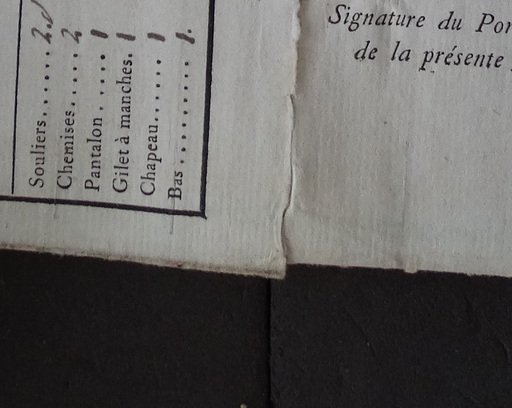 Souliers...... 2
Chemises..... 2
Pantalon..... 1
Gilet à manches. 1
Chapeau...... 1
Bas......... 1.
Signature du
de la présente